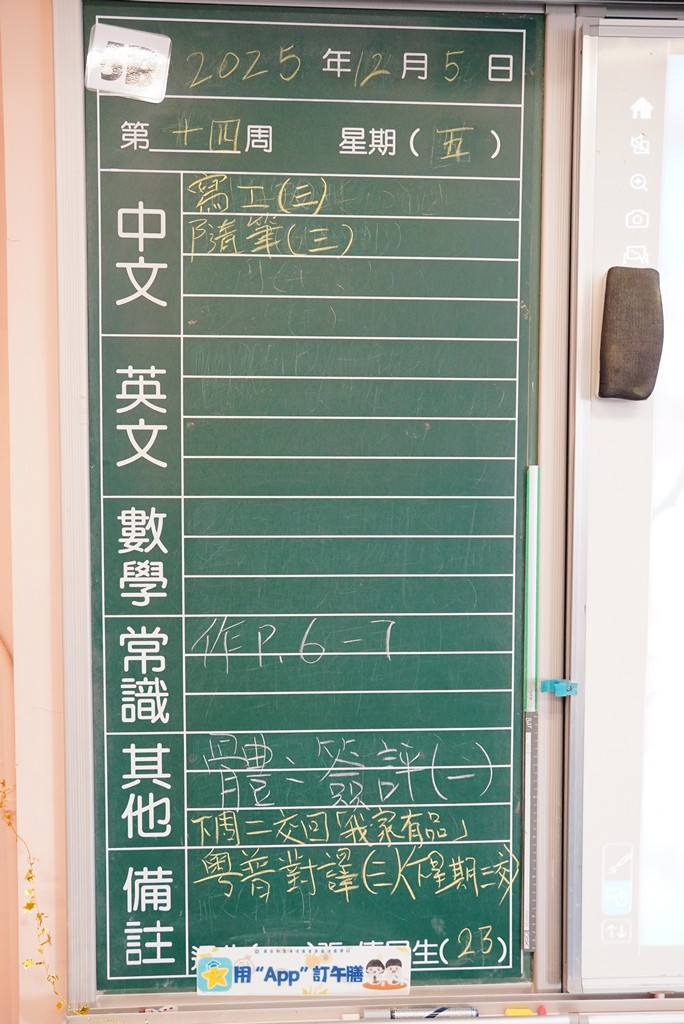 2025年12月5日
第十四周 星期(五)
中文
寫工(三)
隨筆(三)
英文
數學
常識
作P.6-7
其他
體：簽評(一)
下周二交回「我家有品」
備註
粵普對譯(二)(下星期二交)
生(23)
用"App"訂午膳